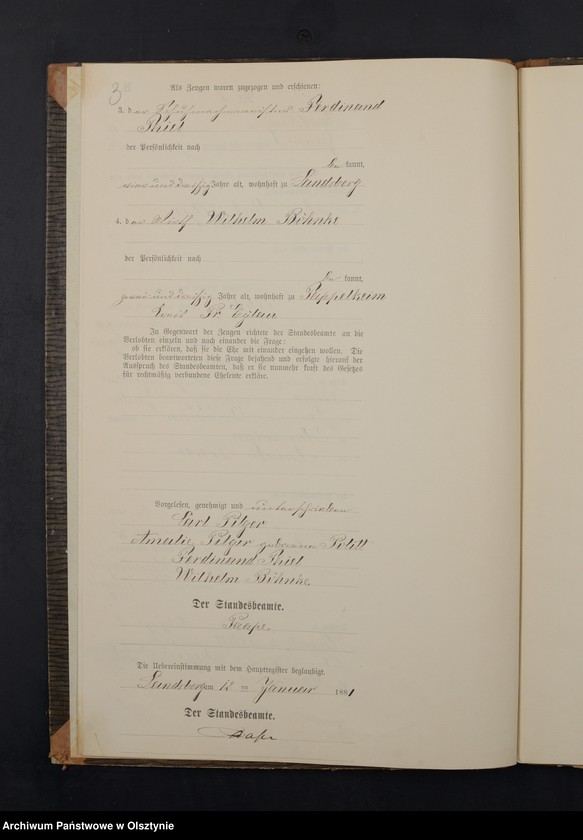 3
Als Zeugen waren zugezogen und erschienen:
3. der Schuhmachermeister Ferdinand
Thiel
der Persönlichkeit nach
be kannt,
Jahre alt, wohnhaft zu Landsberg
4. der Wilhelm Böhnke
der Persönlichkeit nach
be kannt,
zwei und dreißig Jahre alt, wohnhaft zu Poppelheim
Kreis Pr Eylau
In Gegenwart der Zeugen richtete der Standesbeamte an die
Verlobten einzeln und nach einander die Frage:
ob sie erklären, daß sie die Ehe mit einander eingehen wollen. Die
Verlobten beantworteten diese Frage bejahend und erfolgte hierauf der
Ausspruch des Standesbeamten, daß er sie nunmehr kraft des Gesetzes
für rechtmäßig verbundene Eheleute erkläre.
Vorgelesen, genehmigt und unterschrieben
Carl Pilger
Amalie Pilger geborene
Ferdinand Thiel
Wilhelm Böhnke.
Der Standesbeamte.
Die Uebereinstimmung mit dem Hauptregister beglaubigt.
Landsberg am 12 ten Januar 1881
Der Standesbeamte.
Archiwum Państwowe w Olsztynie